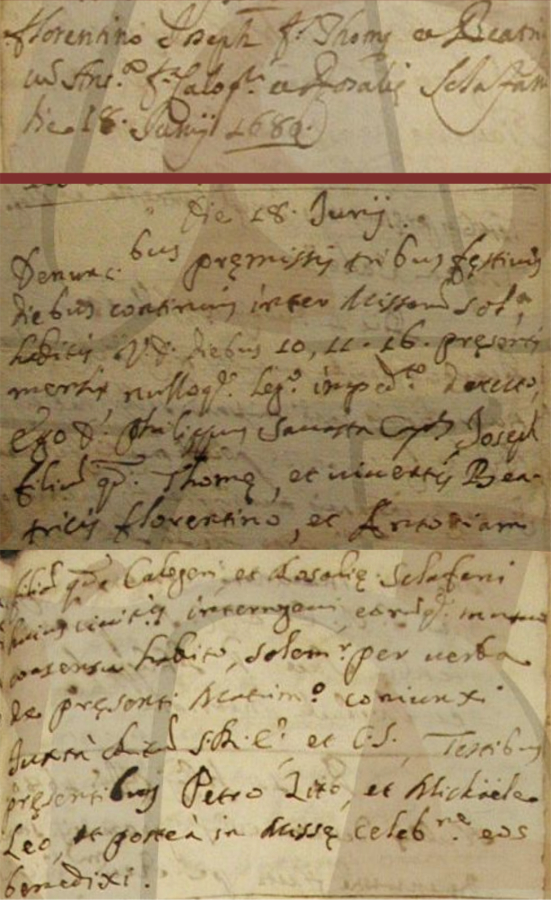 Florentino Joseph f. Thomę et Beatri
ux Ant.ª f. Calog. et Rosalię Sclafani
die 18. Junij 1689.
Die 18. Junij.
Denunc.bus pręmissis tribus festivis
diebus continuis inter Missarū sol.ª
habitis diebus 10, 11. 16. pręsentis
mensis nulloq. leg.º imped.to detecto,
ego D. Philippus Cap. Joseph
filiū qd. Thomę, et viventis Bea-
tricis Florentino, et Antoniam
filiā qd. Calogeri et Rosalię Sclafani
huius civitatis interrogavi eorūq. mutuo
consensu habito, solem.r per verba
de pręsenti Matrim.º coniunxi
Juxta S.R.E. et C.T., Testibus
pręsentibus Petro Lito, et Michaele
Leo, et postea in Missę celeb.ne eos
benedixi.